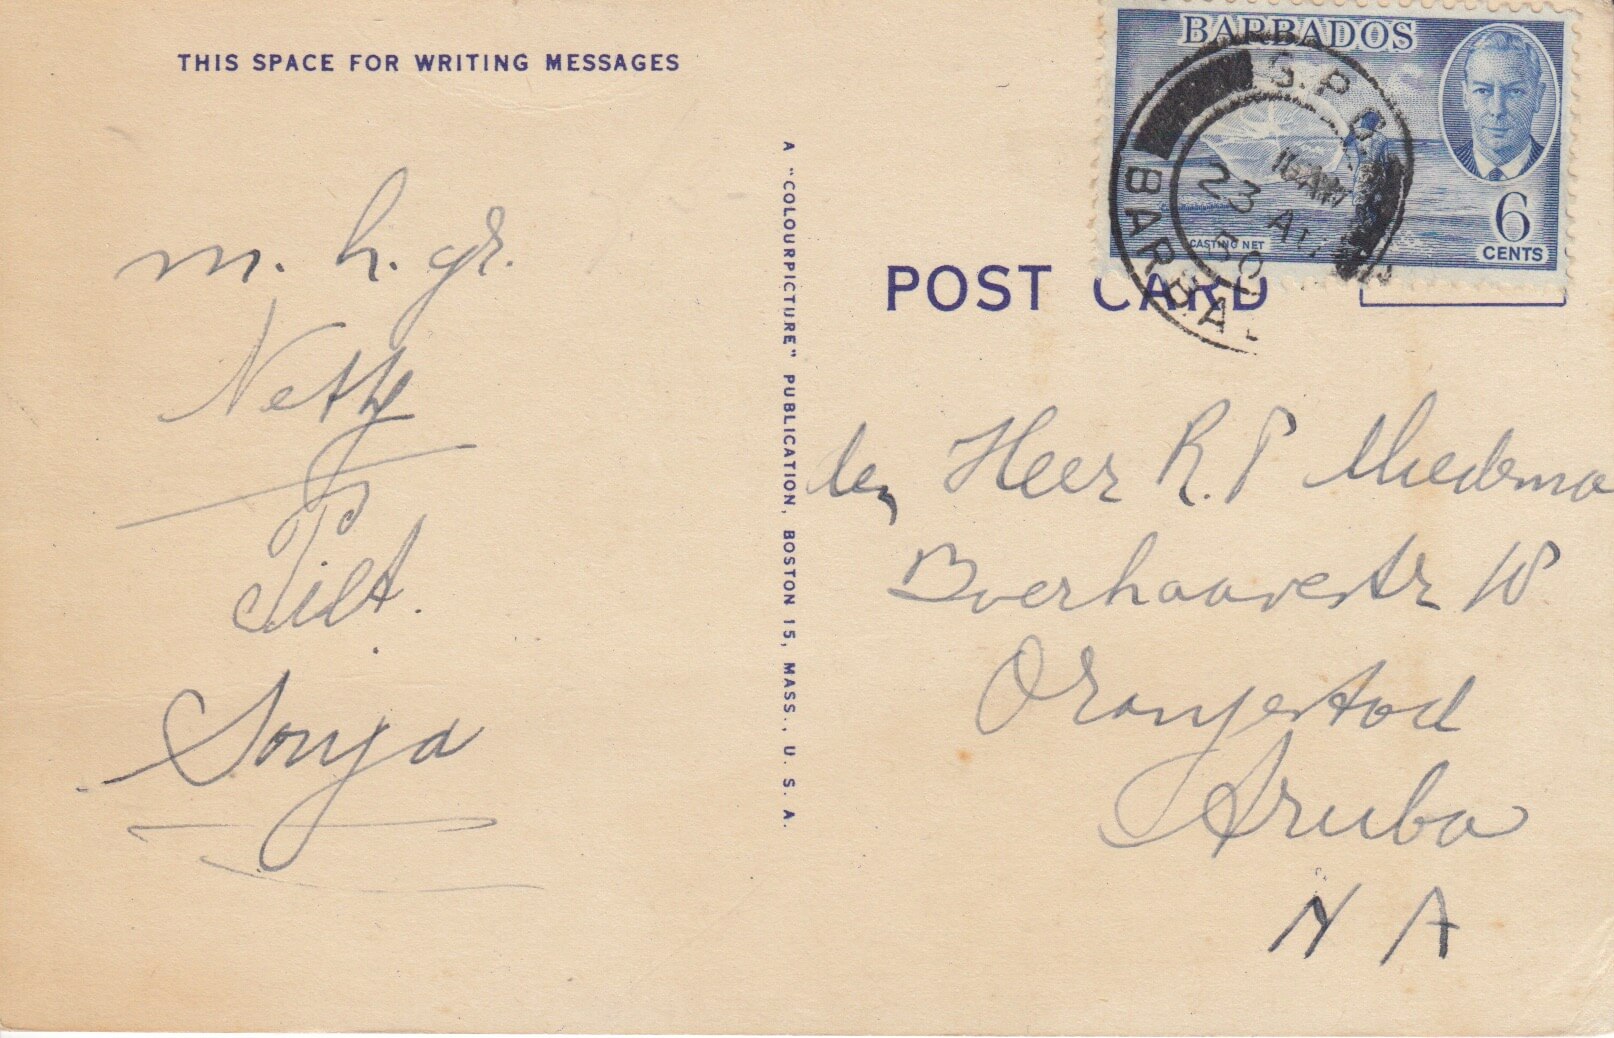 THIS SPACE FOR WRITING MESSAGES
m. h. gr.
Netty
Tilt.
Sonja
A "COLOURPICTURE" PUBLICATION, BOSTON 15, MASS., U. S. A.
BARBADOS
CASTING NET
6
CENTS
G.P.O.
23 AU
50
BARBA
POST CARD
den Heer R. P Miedema
Boerhaavestr 18
Oranjestad
Aruba
N A